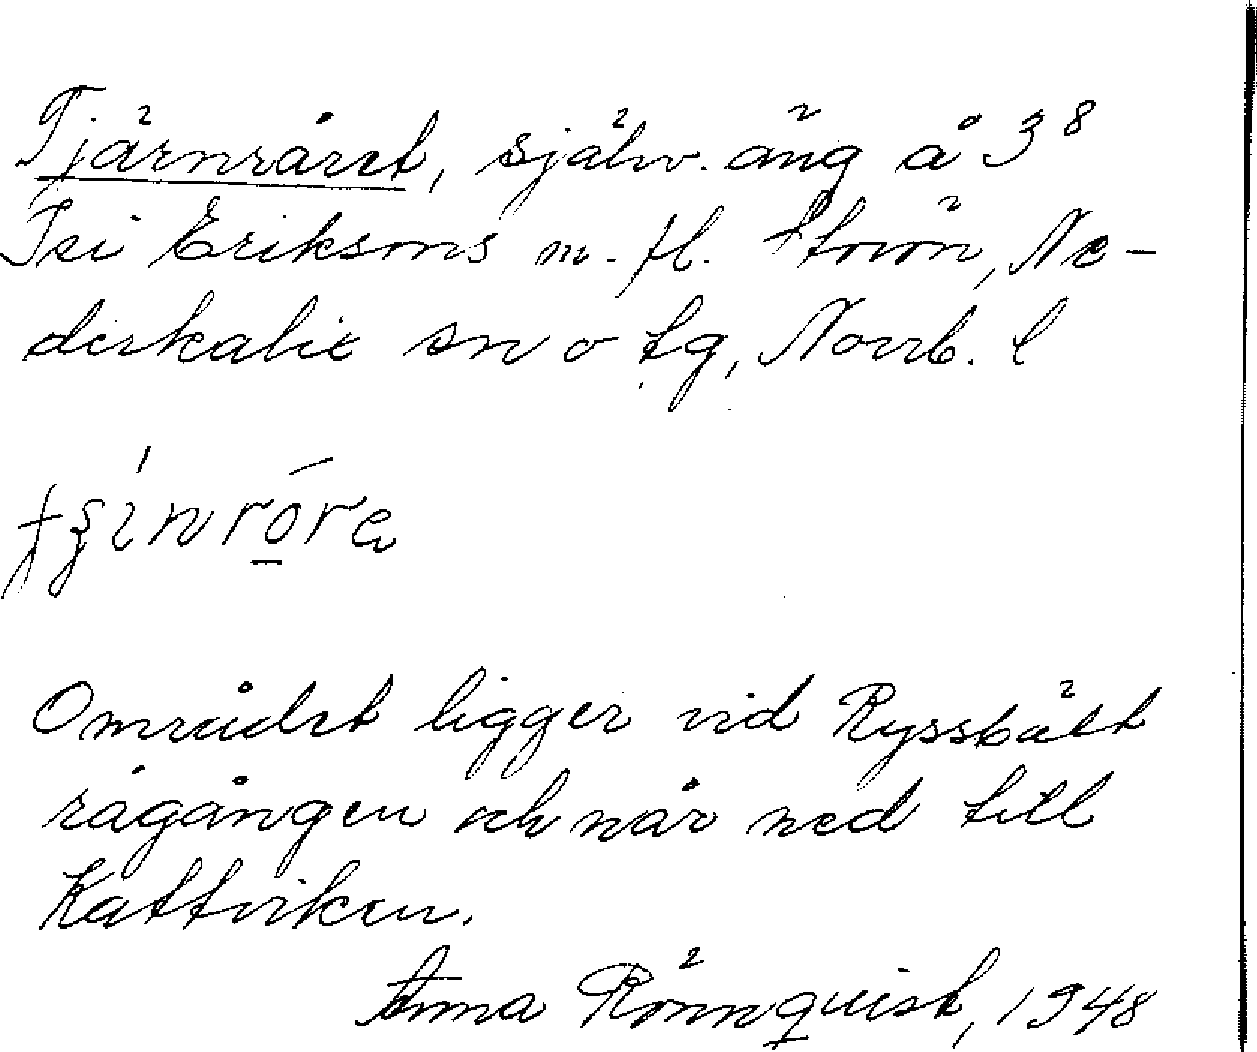 Tjärnråret, själv. äng å 3⁸
Isi Eriksons m. fl. Storön, Ne-
derkalix sn o tg, Norrb. l
Området ligger vid Ryssbält
rågången och når ned till
Kattviken.
Anna Rönnquist, 1948